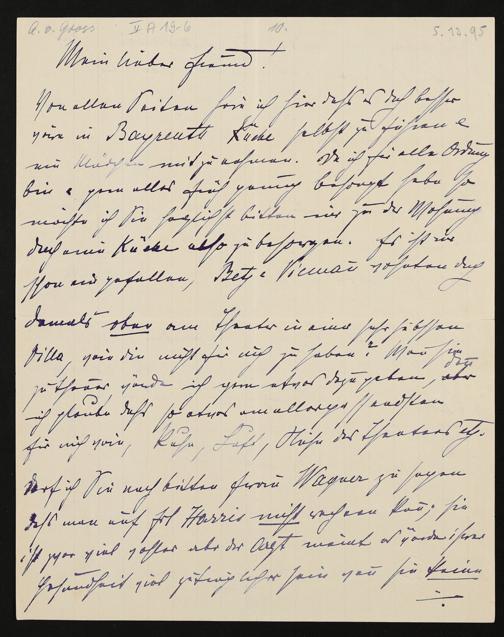 A. v. Gross V A 19-6 10. 5.12.95
Mein lieber Freund!
Von allen Seiten höre ich hier daß es doch besser
wäre in Bayreuth Küche selbst zu führen &
ein Mädchen mitzunehmen. Da ich für alle Ordnung
bin & gern alles früh genug besorgt habe so
möchte ich Sie herzlichst bitten mir zu der Wohnung
doch eine Küche also zu besorgen. Es ist mir
schon eingefallen, Betz & Niemann wohnten doch
damals oben am Theater in einer sehr hübschen
Villa, wäre die nicht für mich zu haben? Wenn sie
zu theuer würde ich gern etwas dazu geben, denn
ich glaube daß so etwas am allerpassendsten
für mich wäre, Ruhe, Luft, Nähe des Theaters etc.
Darf ich Sie noch bitten Frau Wagner zu sagen
daß man auf Frl Harris nicht rechnen kann; sie
ist zwar viel wohler aber der Arzt meint es würde ihrer
Gesundheit viel zuträglicher sein wenn sie keine